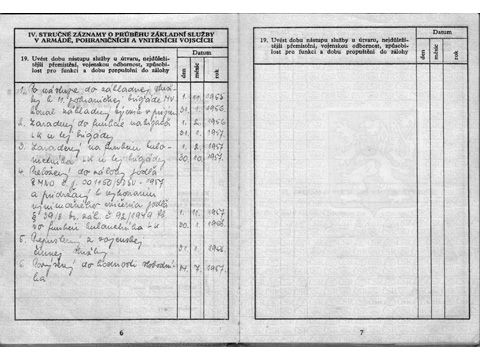 IV. STRUČNÉ ZÁZNAMY O PRŮBĚHU ZÁKLADNÍ SLUŽBY
V ARMÁDĚ, POHRANIČNÍCH A VNITŘNÍCH VOJSCÍCH
19. Uvést dobu nástupu služby u útvaru, nejdůleži-
tější přemístění, vojenskou odbornost, způsobi-
lost pro funkci a dobu propuštění do zálohy
Datum
den
měsíc
rok
1. Po nástupe do základnej služ-
by k 11. pohraničnej brigáde MV 1. 11. 1955
konal základný výcvik v prijím.
31. 1. 1956
2. Zaradený do funkcie 1. 2. 1956
LK u tej brigády 31. 1. 1957
3. Zaradený na funkciu gulo- 1. 2. 1957
metníka LK u tej brigády 30. 10. 1957
4. Preložený do zálohy podľa
RMNO č. j. 001150 1957
a pridržaný k vykonaniu
výnimočného cvičenia podľa
§ 39/2 br. zák. č. 92/1949 Zb. 1. 11. 1957
vo funkcii LK 30. 1. 1958
5. Prepustený z vojenskej
činnej služby 31. 1. 1958
6. Povýšený do hodnosti slobodní- 14. 7. 1957
ka
6
19. Uvést dobu nástupu služby u útvaru, nejdůleži-
tější přemístění, vojenskou odbornost, způsobi-
lost pro funkci a dobu propuštění do zálohy
Datum
den
měsíc
rok
7